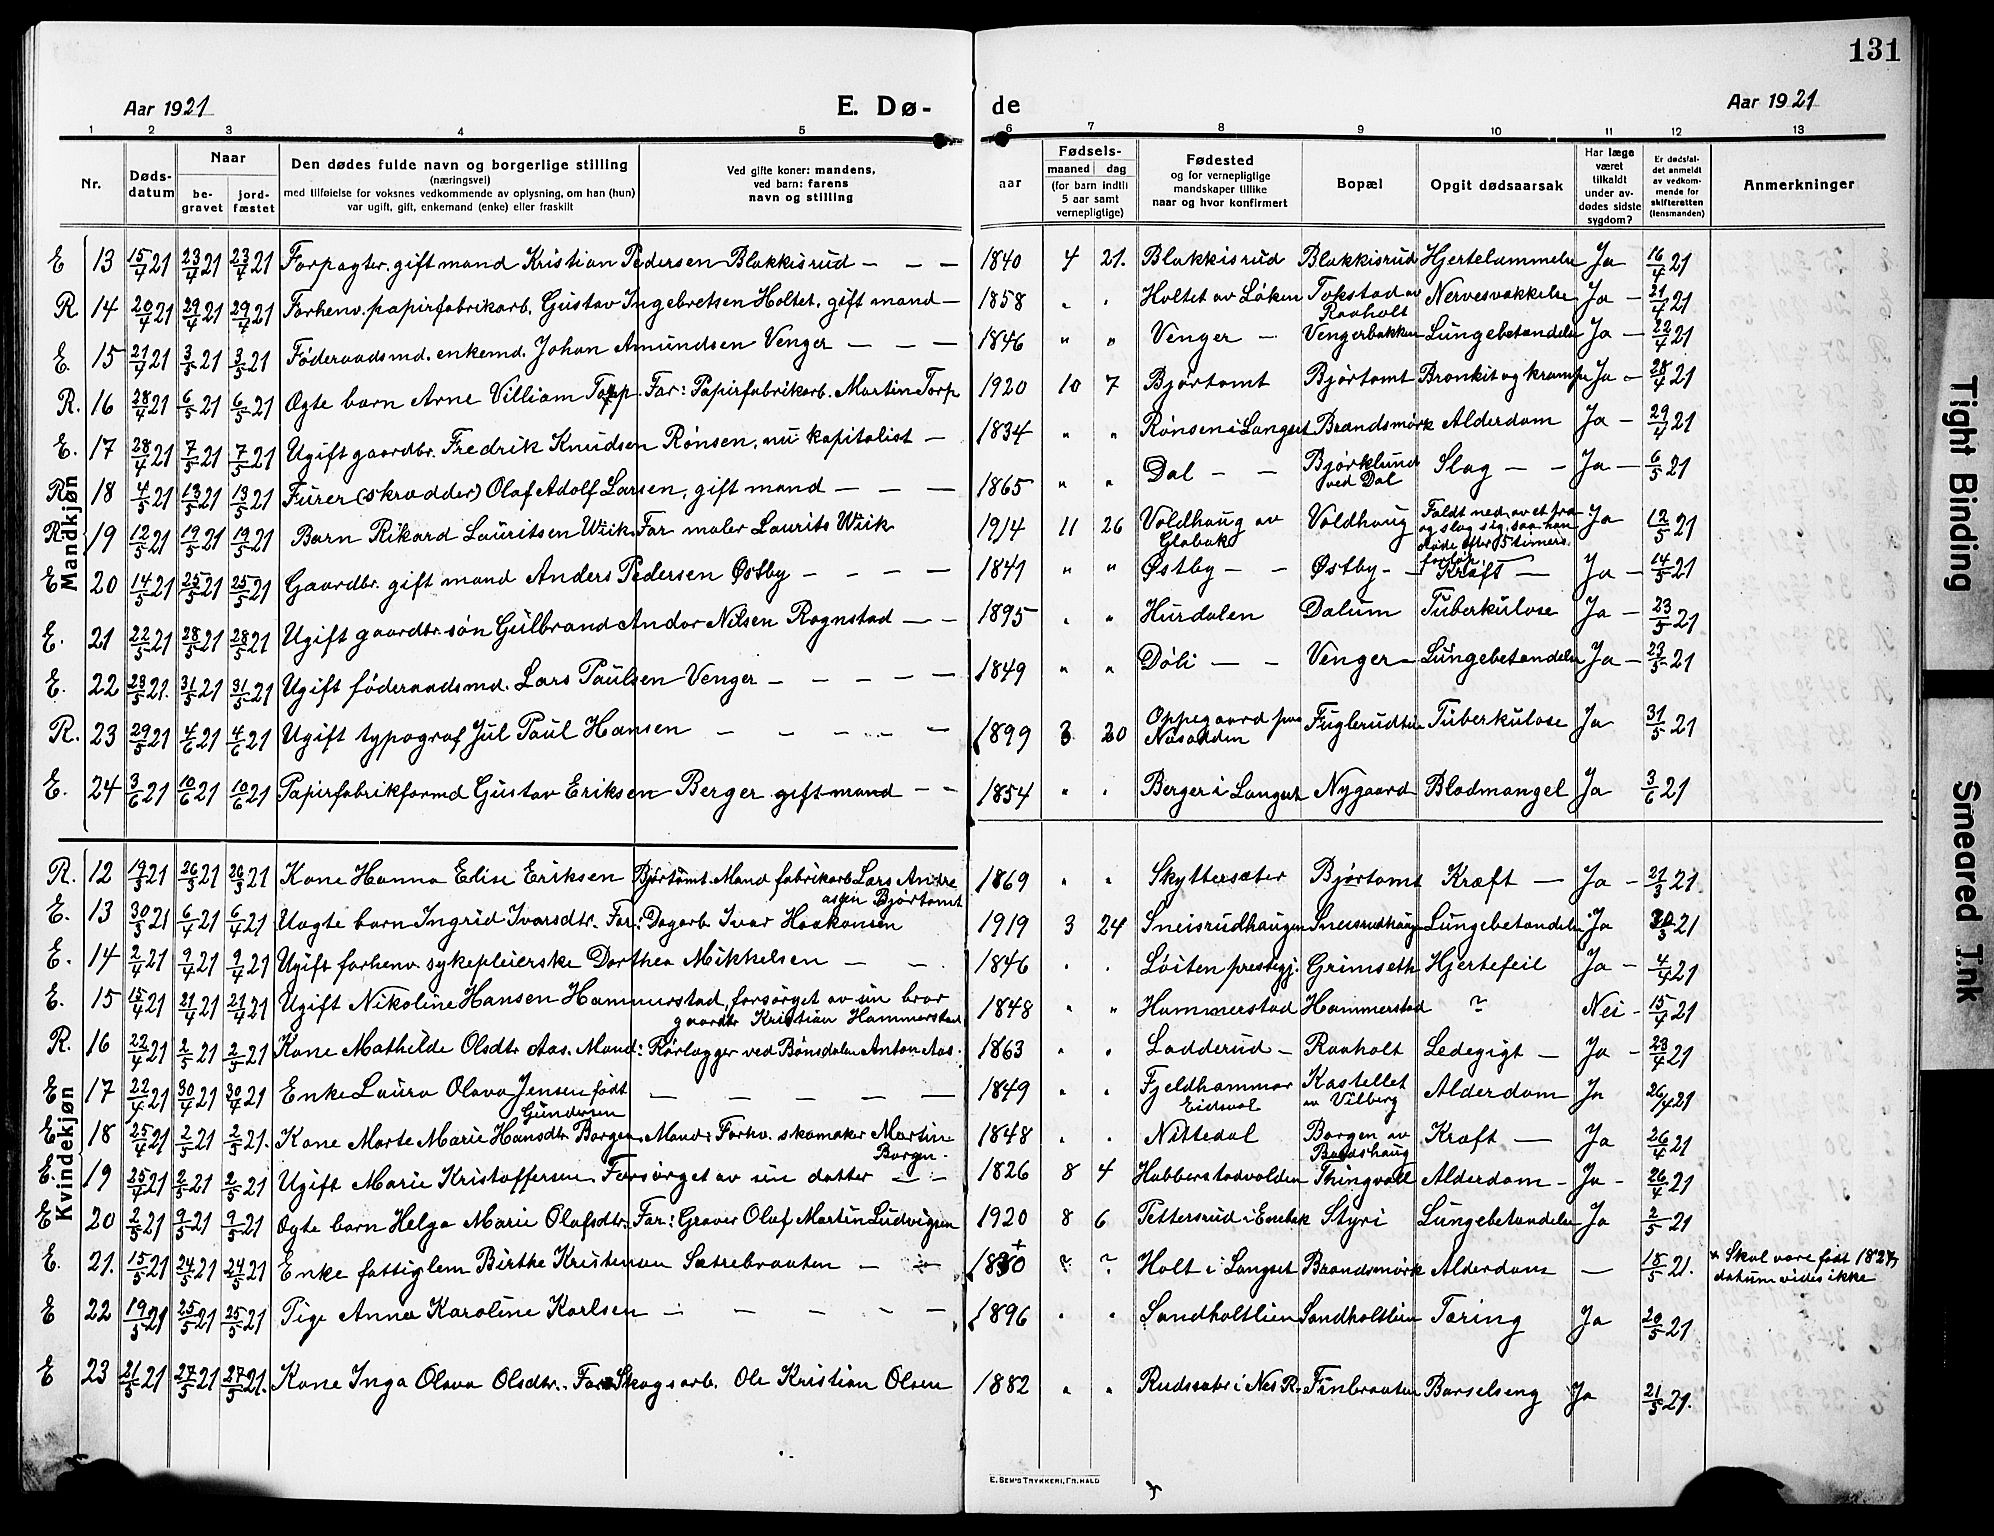 131
Aar 1921 E. Dø- de Aar 1921
1 2 3 4 5 6 7 8 9 10 11 12 13
Nr.
Døds-
datum
Naar
be-
gravet
jord-
fæstet
Den dødes fulde navn og borgerlige stilling
(næringsvei)
med tilføielse for voksnes vedkommende av oplysning, om han (hun)
var ugift, gift, enkemand (enke) eller fraskilt
Ved gifte koner: mandens,
ved barn: farens
navn og stilling
Fødsels-
aar
maaned dag
(for barn indtil
5 aar samt
vernepligtige)
Fødested
og for vernepligtige
mandskaper tillike
naar og hvor konfirmert
Bopæl
Opgit dødsaarsak
Har læge
været
tilkaldt
under av-
dødes sidste
sygdom?
Er dødsfal-
det anmeldt
av vedkom-
mende for
skifteretten
(lensmanden)
Anmerkninger
Mandkjøn
E 13 15/4 21 23/4 21 23/4 21 Forpagter, gift mand Kristian Pedersen Blakkisrud — — — 1840 4 21. Blakkisrud Blakkisrud Hjertelammelse Ja — 16/4 21
R. 14 20/4 21 29/4 21 29/4 21 Forhenv. papirfabrikarb. Gustav Ingebretsen Holtet, gift mand — 1858 " " Holtet av Løken Tokstad av Nervesvækkelse Ja — 21/4 21
Raaholt
E. 15 21/4 21 3/5 21 3/5 21 Føderaadsmd. enkemd. Johan Amundsen Venger — — — 1846 " " Venger — Vengerbakken Lungebetændelse Ja — 22/4 21
R. 16 28/4 21 6/5 21 6/5 21 Ægte barn Arne Villiam Torp. Far: Papirfabrikarb. Martin Torp 1920 10 7 Bjørtomt Bjørtomt Bronkit og krampe Ja — 28/4 21
E. 17 28/4 21 7/5 21 7/5 21 Ugift gaardbr. Fredrik Knudsen Rønsen, nu kapitalist — 1834 " " Rønsen i Langset Brandsmørk Alderdom Ja — 29/4 21
R. 18 4/5 21 13/5 21 13/5 21 Furer (skrædder) Olaf Adolf Larsen, gift mand — — — 1865 " " Dal — — Bjørklund Slag — — Ja — 6/5 21
ved Dal
R. 19 12/5 21 19/5 21 19/5 21 Barn Rikard Lauritsen Wiik. Far maler Laurits Wiik 1914 11 26 Voldhaug av Voldhaug Faldt ned av et træ Ja 12/5 21
Globak og slog sig, saa han
døde efter 5 timers
forløp
E 20 14/5 21 25/5 21 25/5 21 Gaardbr. gift mand Anders Pedersen Østby — — — — 1841 " " Østby — — Østby — Kræft — Ja — 14/5 21
E. 21 22/5 21 28/5 21 28/5 21 Ugift gaardbr. søn Gulbrand Andor Nilsen Rognstad — — 1895 " " Hurdalen Dalum Tuberkulose Ja — 23/5 21
E. 22 23/5 21. 31/5 21 31/5 21 Ugift føderaadsmd. Lars Paulsen Venger — — — — — 1849 " " Døli — — Venger — Lungebetændelse Ja — 23/5 21
R. 23 29/5 21 4/6 21 4/6 21 Ugift typograf Jul Paul Hansen — — — — — 1899 3 20 Oppegaard paa Fuglerudtu Tuberkulose Ja 31/5 21
Nesodden
E. 24 3/6 21 10/6 21 10/6 21 Papirfabrikformd Gustav Eriksen Berger gift mand — — 1854 " " Berger i Langset Nygaard Blodmangel Ja 3/6 21
Kvindekjøn
R. 12 19/3 21 26/3 21 26/3 21 Kone Hanna Elise Eriksen Bjørtomt. Mand fabrikarb. Lars Andre 1869 " " Skyttersæter Bjørtomt Kræft — Ja — 21/3 21.
asen Bjørtomt
E. 13 30/3 21 6/4 21 6/4 21 Uægte barn Ingrid Ivarsdtr. Far: Dagarb. Ivar Haakonsen 1919 3 24 Sneisrudhaugen Sneisrudhaug Lungebetændelse Ja 30/3 21
E. 14 2/4 21 9/4 21 9/4 21 Ugift forhenv. sykepleierske Dorthea Mikkelsen — — 1846 " " Løiten prestegj. Grimseth Hjertefeil Ja — 4/4 21
E. 15 15/4 21 21/4 21 21/4 21 Ugift Nikoline Hansen Hammerstad, forsørget av sin bror 1848 " " Hammerstad Hammerstad ? Nei — 15/4 21
gaardbr Kristian Hammerstad
R. 16 22/4 21 2/5 21 2/5 21 Kone Mathilde Olsdtr. Aas. Mand: Rørlægger ved Bønsdalen Anton Aas. 1863 " " Ladderud — Raaholt Ledegigt — Ja — 23/4 21
E 17 22/4 21 30/4 21 30/4 21 Enke Laura Olava Jensen født — — — — — 1849 " " Fjeldhammar Kastellet Alderdom Ja 26/4 21
Gundersen Eidsvol av Vilberg
E 18 25/4 21 2/5 21 2/5 21. Kone Marte Marie Hansdtr. Borgen. Mand: Forhv. skomaker Martin 1848 " " Nittedal Borgen av Kræft — Ja 26/4 21
Borgen. Baadshaug
E. 19 25/4 21 2/5 21 2/5 21 Ugift Marie Kristoffersen. Forsørget av sin datter — — 1826 8 4 Habberstadvolden Thingvold Alderdom — Ja — 26/4 21
E 20 2/5 21 9/5 21 9/5 21 Ægte barn Helga Marie Olafsdtr. Far: Graver Olaf Martin Ludvigsen 1920 8 6 Tettersrud i Enebak Styri Lungebetændelse Ja 2/5 21
E. 21. 15/5 21 24/5 21 24/5 21 Enke fattiglem Birthe Kristensen Sætrebraaten — — 1830 + ? ? Holt i Langset Brandsmørk Alderdom — 18/5 21. + Skal være født 1827,
datum vides ikke
E 22 19/5 21 25/5 21 25/5 21 Pige Anna Karoline Karlsen — — — — — 1896 " " Sandholtlien Sandholtlien Tæring Ja 20/5 21
E 23 21/5 21 27/5 21 27/5 21. Kone Inga Olava Olsdtr. Far Skogsarb. Ole Kristian Olsen 1882 " " Rudssæter i Nes R. Finbraaten Barselseng Ja 21/5 21.
E. SEM'S TRYKKERI, FR.HALD
Tight Binding
Smeared Ink